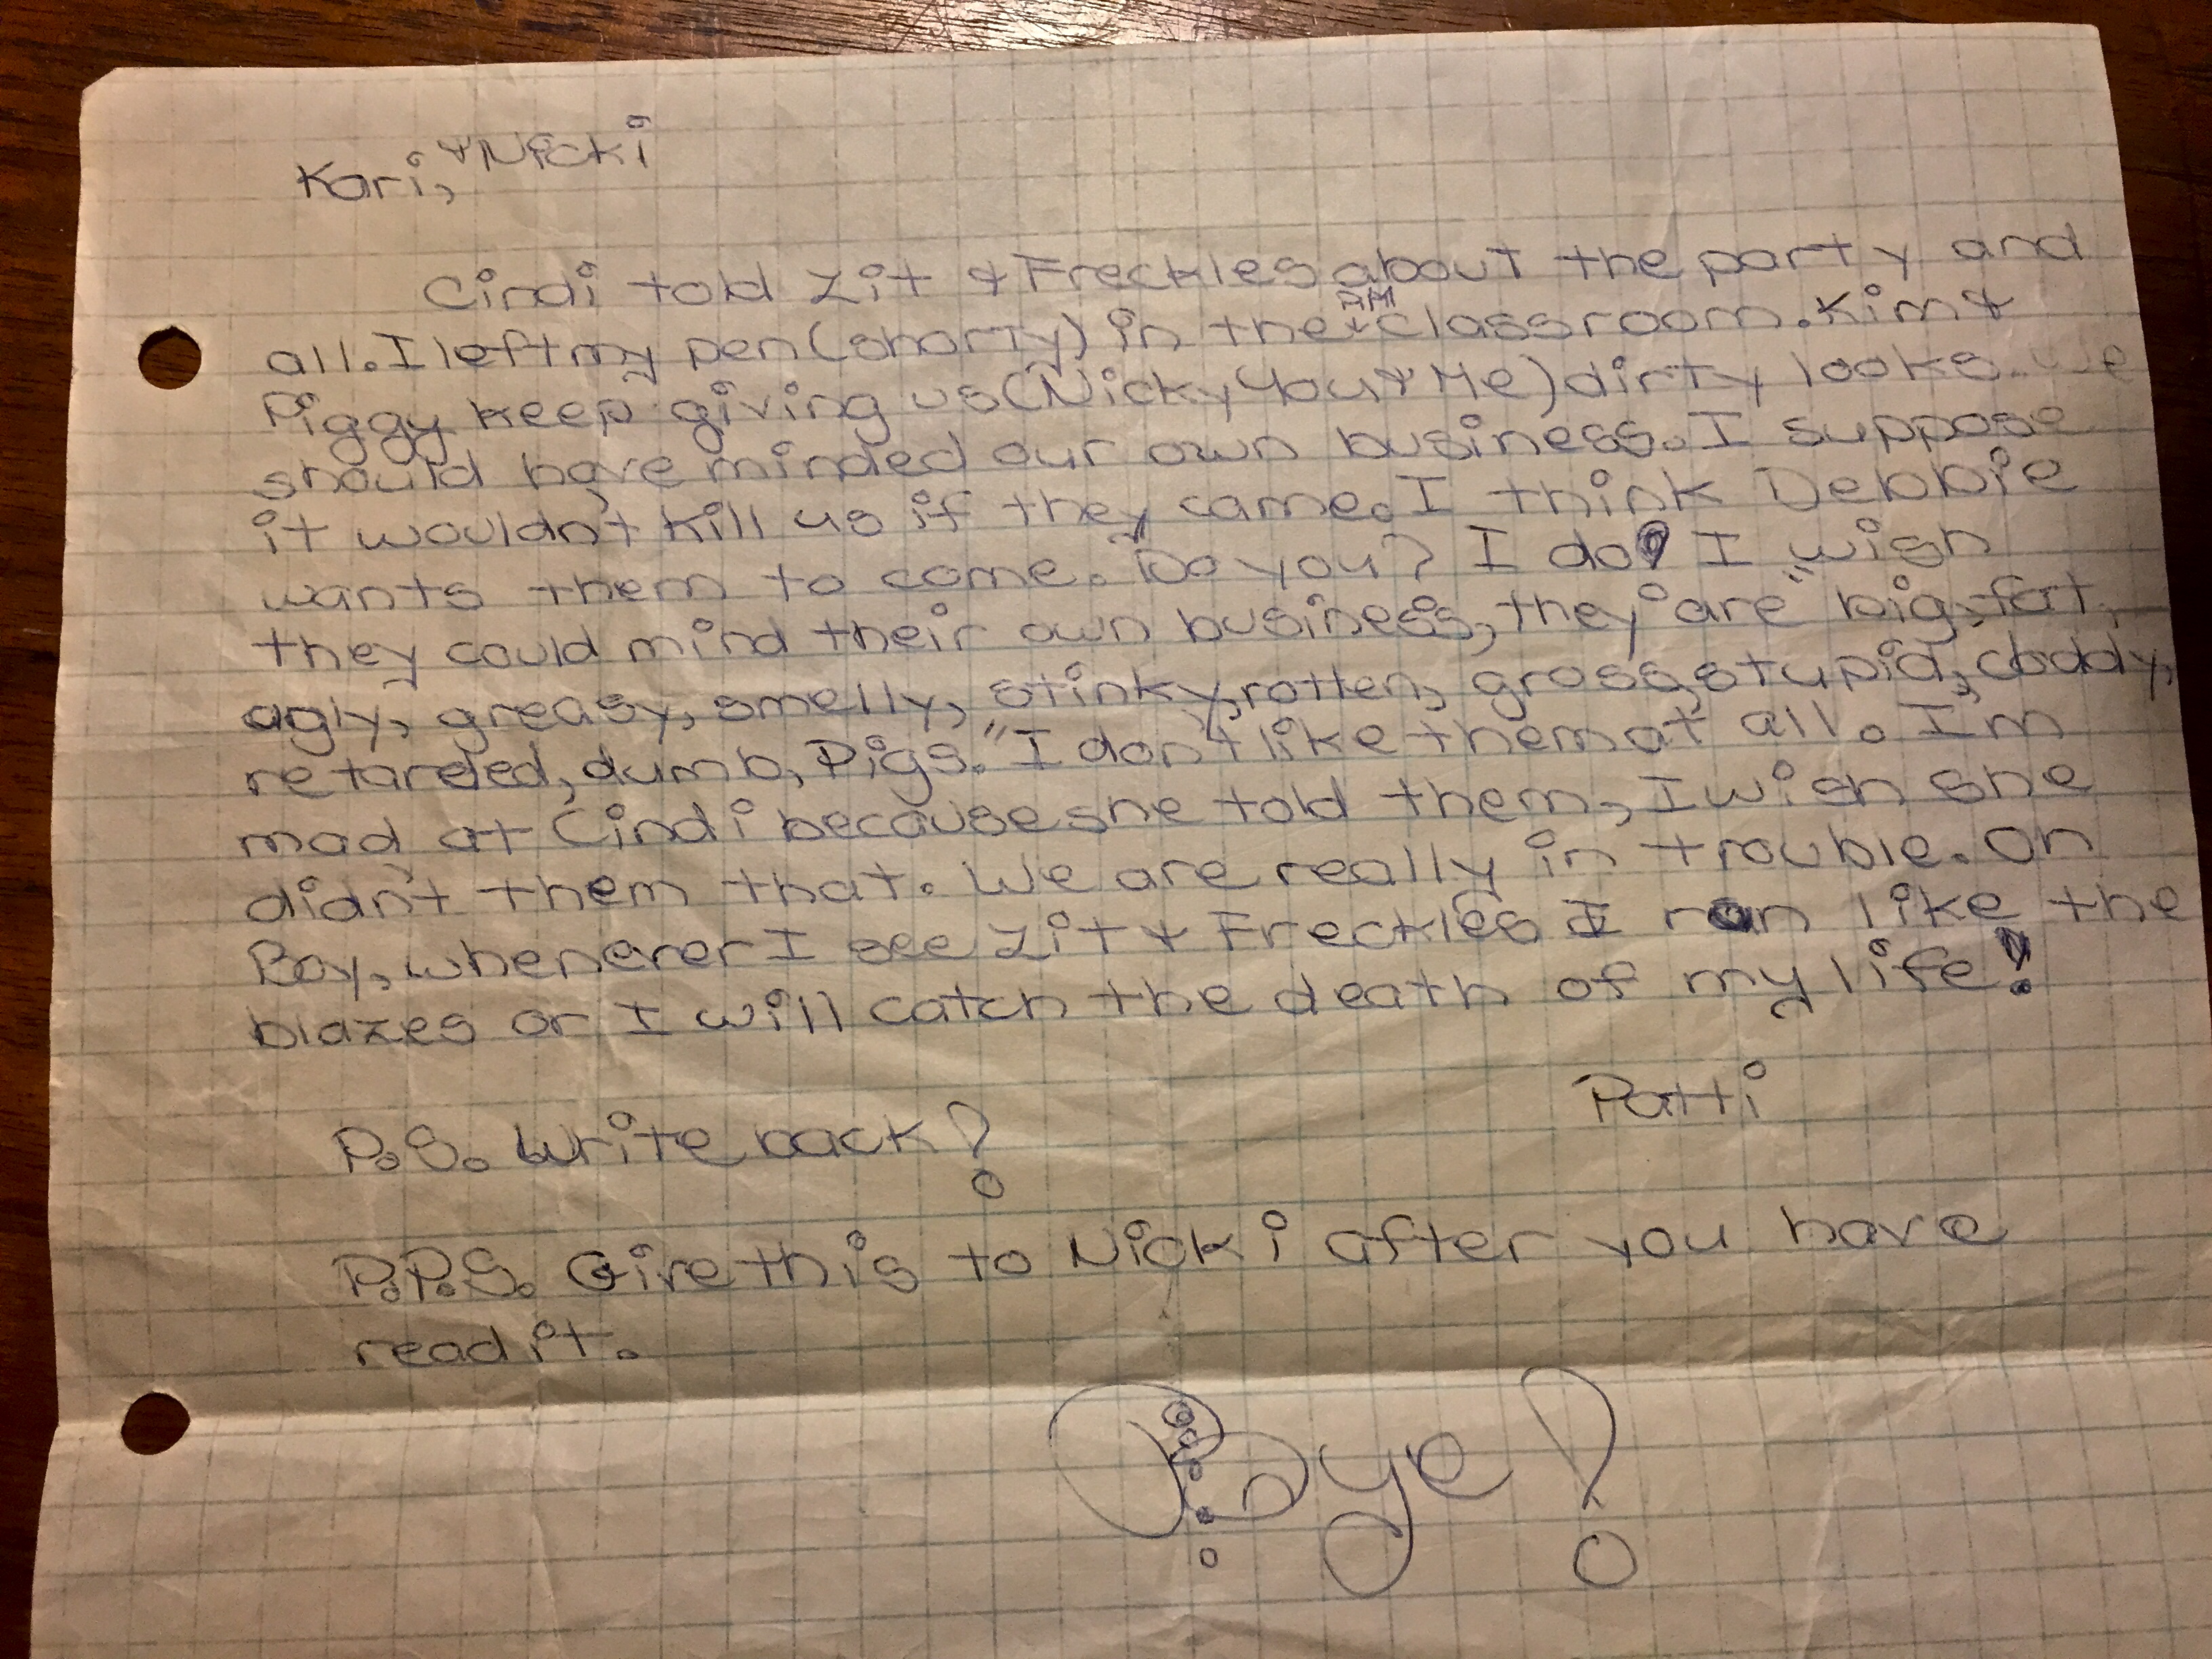 Kari, + Nicki
Cindi told Zit + Freckles about the party and
all. I left my pen (shorty) in the AM classroom. Kim +
Piggy keep giving us (Nicky You + Me) dirty looks. We
should have minded our own business. I suppose
it wouldn't kill us if they came. I think Debbie
wants them to come. Do you? I do! I wish
they could mind their own business, they "are" big, fat,
ugly, greasy, smelly, stinky, rotten, gross, stupid, cruddy,
retarded, dumb, Pigs." I don't like them at all. I'm
mad at Cindi because she told them, I wish she
didn't them that. We are really in trouble. Oh
Boy, whenever I see Zit + Freckles I run like the
blazes or I will catch the death of my life!
Patti
P.S. Write back!
P.P.S. Give this to Nicki after you have
read it.
Bye!